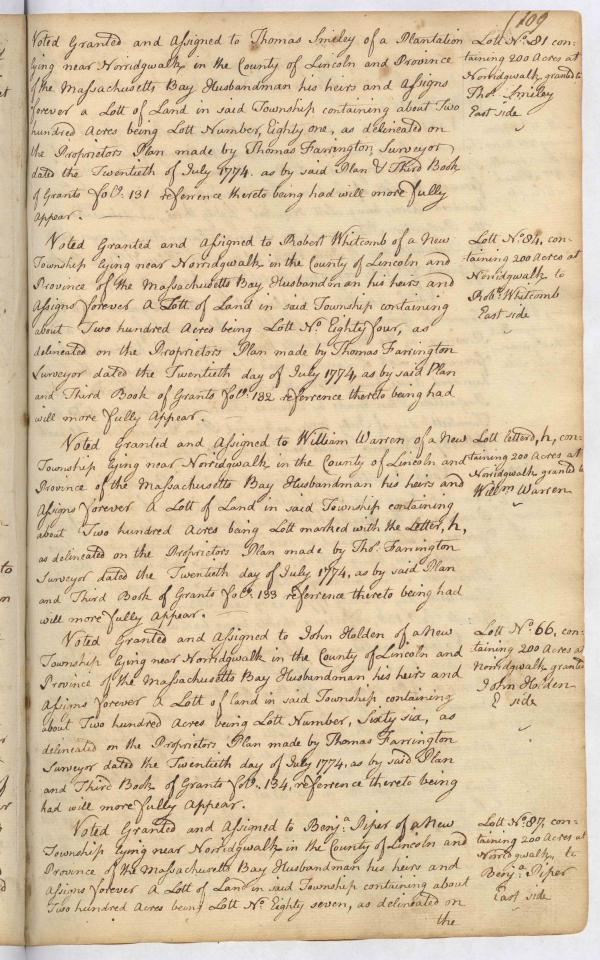 109
Voted Granted and Assigned to Thomas Smiley of a Plantation
lying near Norridgwalk in the County of Lincoln and Province
of the Massachusetts Bay Husbandman his heirs and Assigns
forever a Lott of Land in said Township containing about Two
hundred Acres being Lott Number, Eighty one, as delineated on
the Proprietors Plan made by Thomas Farrington Surveyor
dated the Twentieth of July 1774. as by said Plan & Third Book
of Grants fol.º 131 referrence thereto being had will more fully
Appear.
Lott Nº 81 con-
taining 200 Acres at
Norridgwalk granted to
Thoˢ. Smiley
East side
Voted Granted and Assigned to Robert Whitcomb of a New
Township lying near Norridgwalk in the County of Lincoln and
Province of the Massachusetts Bay Husbandman his heirs and
Assigns forever A Lott of Land in said Township containing
about Two hundred Acres being Lott Nº Eighty four, as
delineated on the Proprietors Plan made by Thomas Farrington
Surveyor dated the Twentieth day of July 1774, as by said Plan
and Third Book of Grants fol.º 132 reference thereto being had
will more fully Appear.
Lott Nº 84. con-
taining 200 Acres at
Norridgwalk to
Robᵗ. Whitcomb
East side
Voted Granted and Assigned to William Warren of a New
Township lying near Norridgwalk in the County of Lincoln and
Province of the Massachusetts Bay Husbandman his heirs and
Assigns forever A Lott of Land in said Township containing
about Two hundred Acres being Lott marked with the Letter, h,
as delineated on the Proprietors Plan made by Thoˢ. Farrington
Surveyor dated the Twentieth day of July 1774, as by said Plan
and Third Book of Grants fol.º 133 reference thereto being had
will more fully Appear.
Lott Letterd, h, con-
taining 200 Acres at
Norridgwalk granted to
Willᵐ Warren
Voted Granted and Assigned to John Holden of a New
Township lying near Norridgwalk in the County of Lincoln and
Province of the Massachusetts Bay Husbandman his heirs and
Assigns forever a Lott of land in said Township containing
about Two hundred Acres being Lott Number, Sixty six, as
delineated on the Proprietors Plan made by Thomas Farrington
Surveyor dated the Twentieth day of July 1774, as by said Plan
and Third Book of Grants fol.º 134, reference thereto being
had will more fully Appear.
Lott Nº 66, con-
taining 200 Acres at
Norridgwalk granted
John Holden
E side
Voted Granted and Assigned to Benjᵃ. Piper of a New
Township lying near Norridgwalk in the County of Lincoln and
Province of the Massachusetts Bay Husbandman his heirs and
Assigns forever A Lott of Land in said Township containing about
Two hundred Acres being Lott Nº Eighty seven, as delineated on
the
Lott Nº 87, con-
taining 200 Acres at
Norridgwalk to
Benjᵃ. Piper
East side